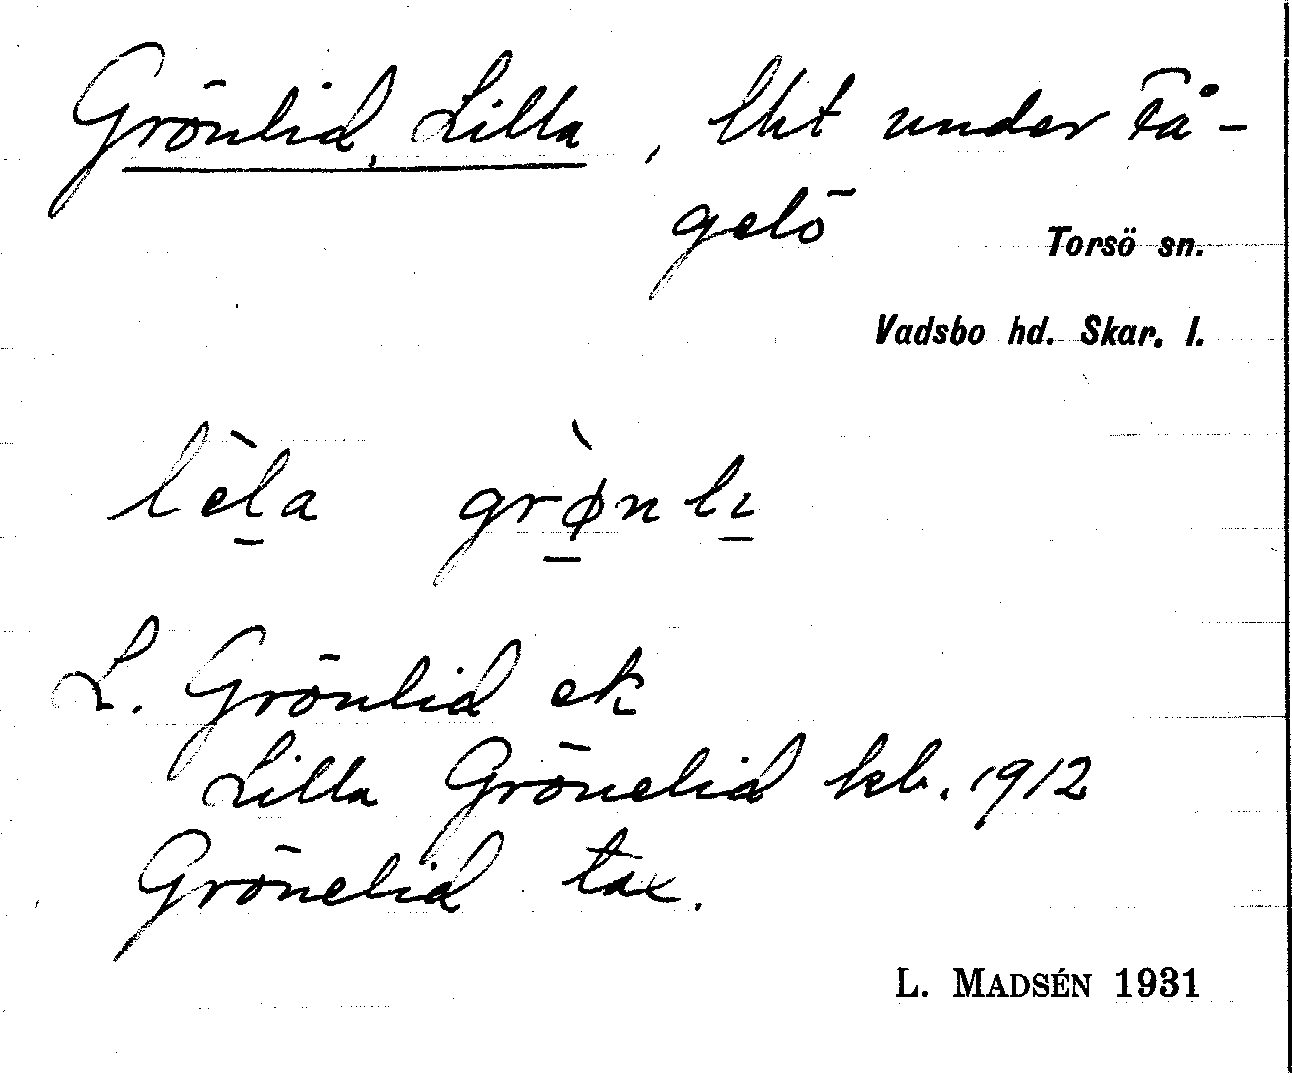 Grönlid, Lilla, lht under Få-
gelö
Torsö sn.
Vadsbo hd. Skar. l.
lèla grø̀nlı
L. Grönlid ek
Lilla Grönelid kb. 1912
Grönelid tax.
L. MADSÉN 1931